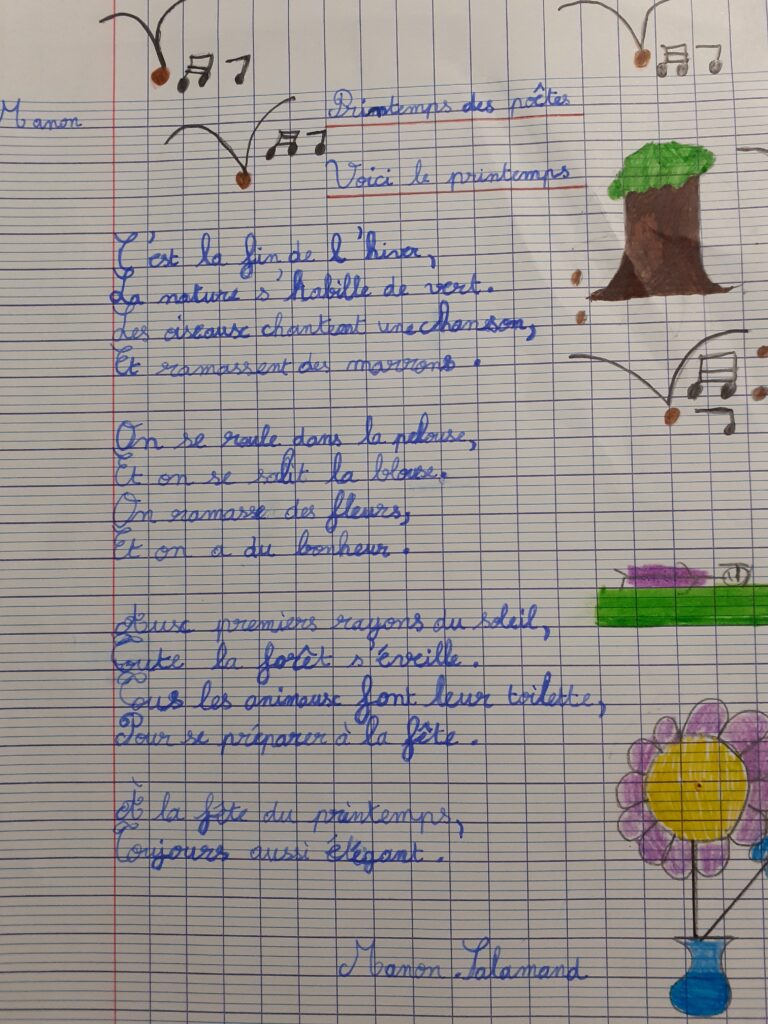 Manon
Printemps des poètes
Voici le printemps
C'est la fin de l'hiver,
La nature s'habille de vert.
Les oiseaux chantent une chanson,
Et ramassent des marrons.
On se roule dans la pelouse,
Et on se salit la blouse.
On ramasse des fleurs,
Et on a du bonheur.
Aux premiers rayons du soleil,
Toute la forêt s'éveille.
Tous les animaux font leur toilette,
Pour se préparer à la fête.
À la fête du printemps,
Toujours aussi élégant.
Manon Salamand